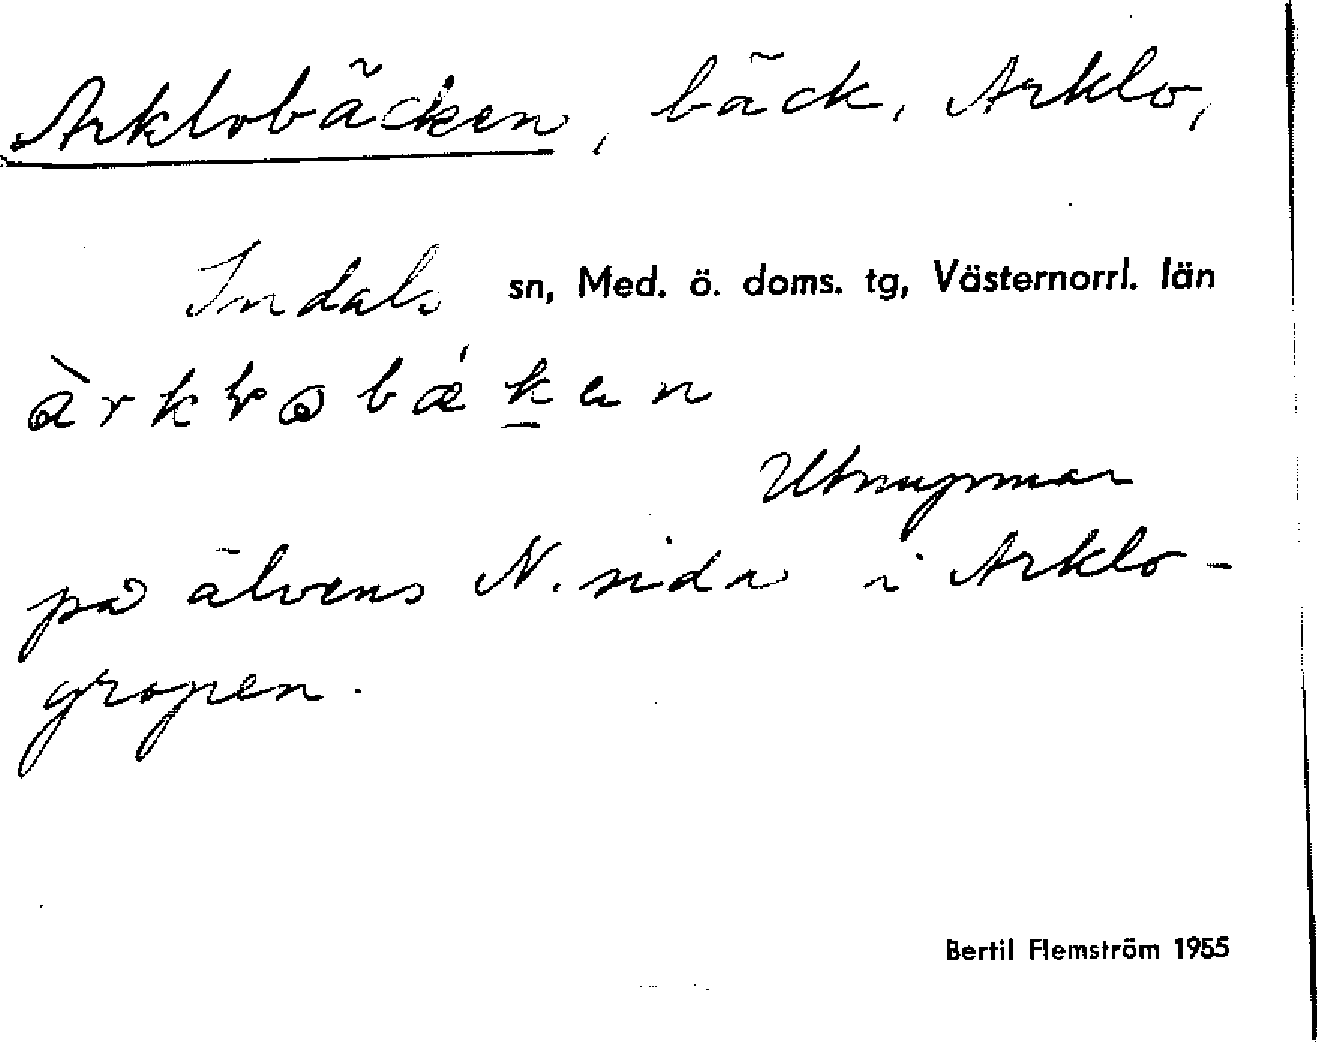 Arklobäcken, bäck, Arklo,
Indals sn, Med. ö. doms. tg, Västernorrl. län
på älvens N. sida i Arklo-
gropen.
Bertil Flemström 1955